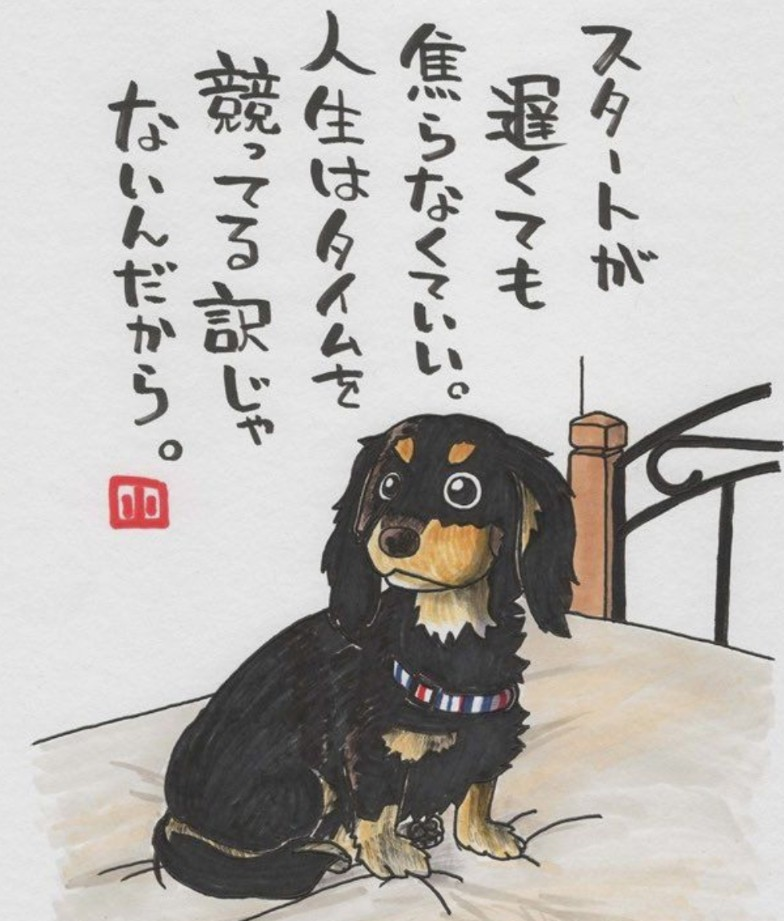 スタートが
遅くても
焦らなくていい。
人生はタイムを
競ってる訳じゃ
ないんだから。